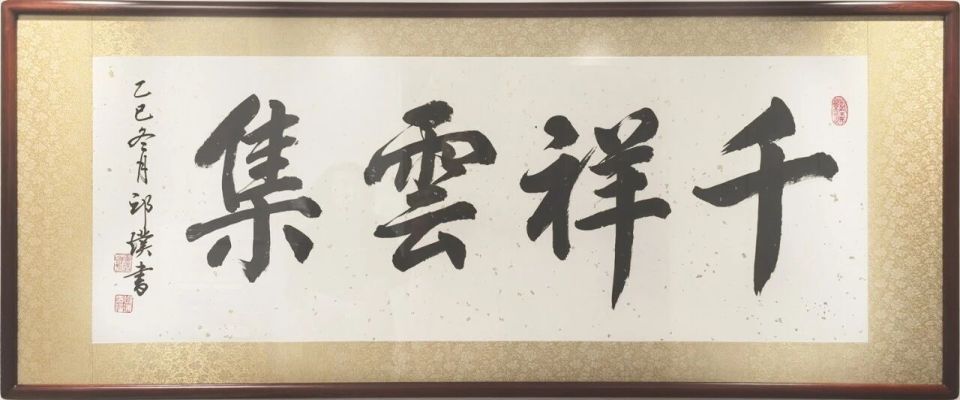 千祥雲集
乙巳冬月邱璞書